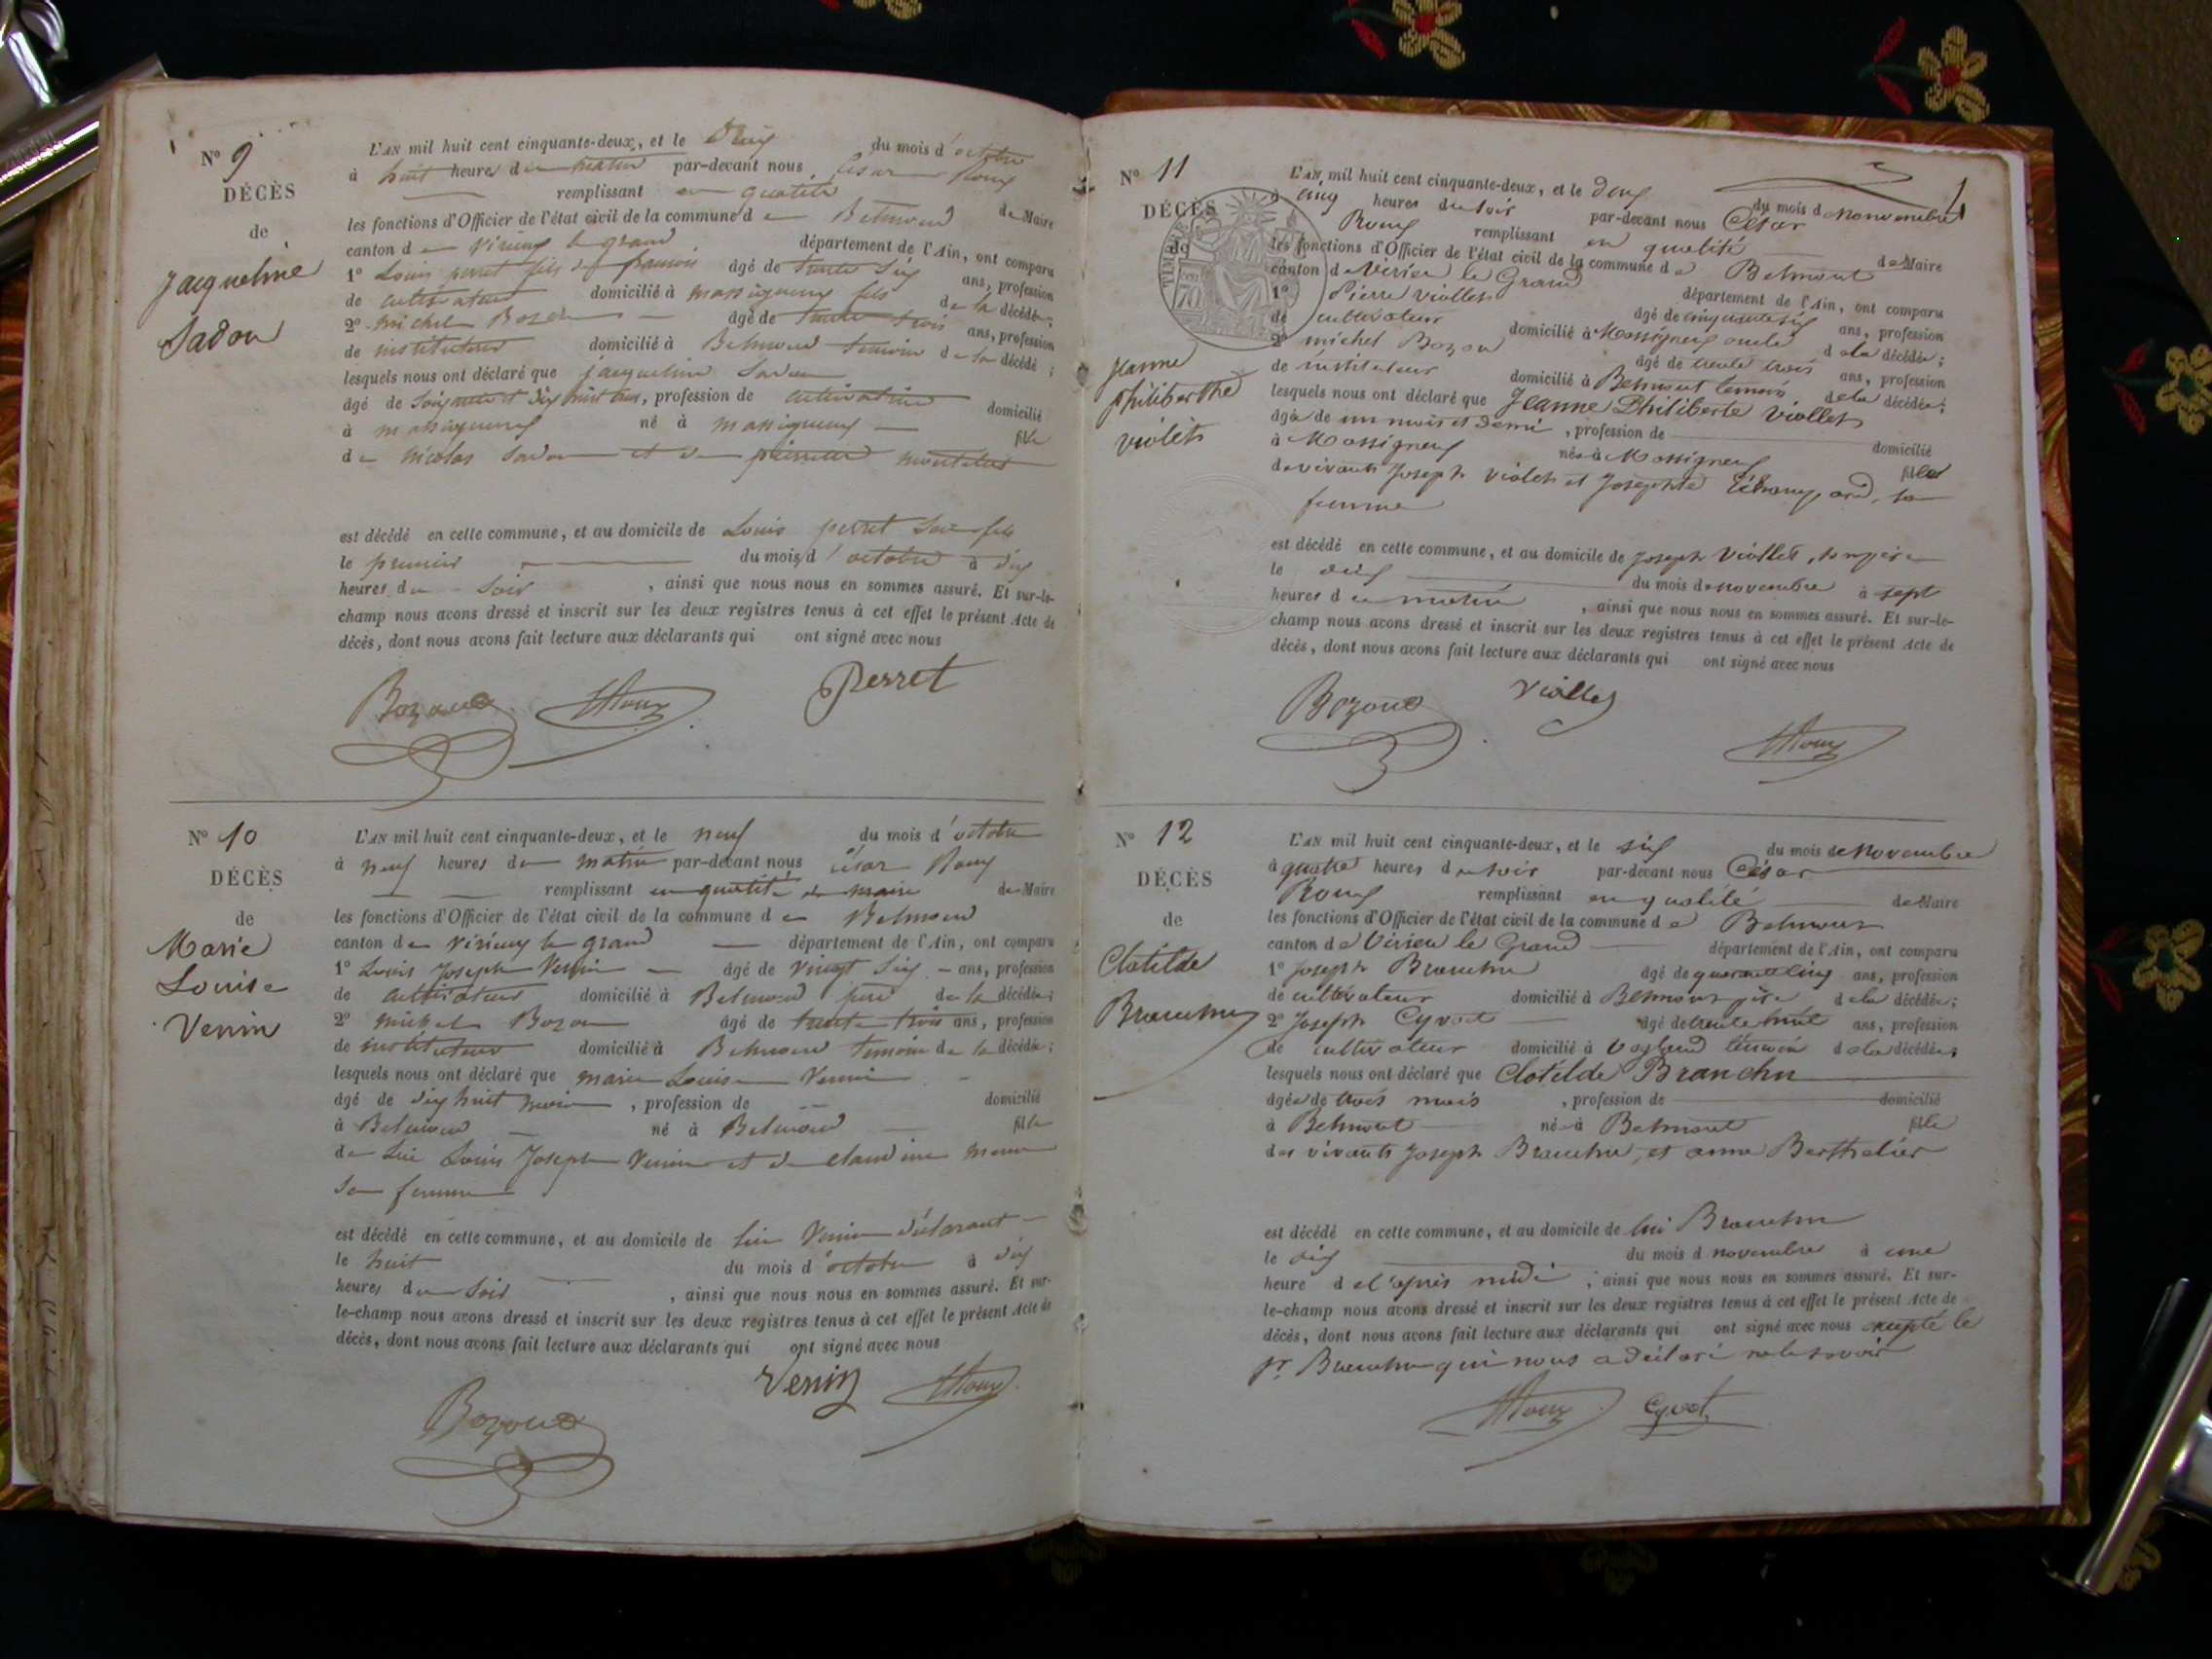 N° 9
DÉCÈS
de
jacqueline
Sadou
L'AN mil huit cent cinquante-deux, et le deux du mois d'octobre
à huit heures du matin par-devant nous César Roux
remplissant en qualité de Maire
les fonctions d'Officier de l'état civil de la commune de Belmont
canton de virieux le grand département de l'Ain, ont comparu
1° Louis perret fils de francois âgé de trente six ans, profession
de cultivateur domicilié à massigneux fils de la décédée;
2° michel Bozon âgé de trente trois ans, profession
de instituteur domicilié à Belmont temoin de la décédé;
lesquels nous ont déclaré que jacqueline Sadou
âgé de soixante et dix huit ans, profession de cultivatrice domicilié
à massigneux né à massigneux fille
de nicolas Sadou et de pierrette
est décédé en cette commune, et au domicile de Louis perret son fils
le premier du mois d'octobre à dix
heures du soir, ainsi que nous nous en sommes assuré. Et sur-le-
champ nous avons dressé et inscrit sur les deux registres tenus à cet effet le présent Acte de
décès, dont nous avons fait lecture aux déclarants qui ont signé avec nous
Bozon Roux Perret
N° 10
DÉCÈS
de
Marie
Louise
Venin
L'AN mil huit cent cinquante-deux, et le neuf du mois d'octobre
à neuf heures du matin par-devant nous césar Roux
remplissant en qualité de maire de Maire
les fonctions d'Officier de l'état civil de la commune de Belmont
canton de virieux le grand département de l'Ain, ont comparu
1° Louis Joseph Venin âgé de vingt six ans, profession
de cultivateur domicilié à Belmont père de la décédée;
2° michel Bozon âgé de trente trois ans, profession
de instituteur domicilié à Belmont temoin de la décédée;
lesquels nous ont déclaré que marie Louise Venin
âgé de dix huit mois, profession de domicilié
à Belmont né à Belmont fille
de lui Louis Joseph Venin et de claudine
sa femme
est décédé en cette commune, et au domicile de lui Venin déclarant
le huit du mois d'octobre à dix
heures du soir, ainsi que nous nous en sommes assuré. Et sur-
le-champ nous avons dressé et inscrit sur les deux registres tenus à cet effet le présent Acte de
décès, dont nous avons fait lecture aux déclarants qui ont signé avec nous
Venin Roux
Bozon
N° 11
DÉCÈS
de
TIMBRE
70
jeanne
philiberthe
violet
L'AN mil huit cent cinquante-deux, et le deux du mois de novembre
à cinq heures du soir par-devant nous César
Roux remplissant en qualité de Maire
les fonctions d'Officier de l'état civil de la commune de Belmont
canton de Virieu le Grand département de l'Ain, ont comparu
1° Pierre Viollet âgé de cinquante six ans, profession
de cultivateur domicilié à Massigneux oncle de la décédée;
2° michel Bozon âgé de trente trois ans, profession
de instituteur domicilié à Belmont temoin de la décédée;
lesquels nous ont déclaré que Jeanne Philiberte Viollet
âgée de un mois et demi, profession de domicilié
à Massigneux née à Massigneux fille
de vivants Joseph Violet et Josephte sa
femme
est décédé en cette commune, et au domicile de Joseph Viollet, son père
le deux du mois de novembre à sept
heures du matin, ainsi que nous nous en sommes assuré. Et sur-le-
champ nous avons dressé et inscrit sur les deux registres tenus à cet effet le présent Acte de
décès, dont nous avons fait lecture aux déclarants qui ont signé avec nous
Bozon Viollet
Roux
N° 12
DÉCÈS
de
Clotilde
Branchu
L'AN mil huit cent cinquante-deux, et le six du mois de Novembre
à quatre heures du soir par-devant nous César
Roux remplissant en qualité de Maire
les fonctions d'Officier de l'état civil de la commune de Belmont
canton de Virieu le Grand département de l'Ain, ont comparu
1° Joseph Branchu âgé de quarante cinq ans, profession
de cultivateur domicilié à Belmont père de la décédée;
2° Joseph Cyvoct âgé de trente huit ans, profession
de cultivateur domicilié à temoin de la décédée;
lesquels nous ont déclaré que Clotilde Branchu
âgée de trois mois, profession de domicilié
à Belmont née à Belmont fille
des vivants Joseph Branchu, et anne Berthelier
est décédé en cette commune, et au domicile de lui Branchu
le six du mois d novembre à une
heure de l'après midi; ainsi que nous nous en sommes assuré. Et sur-
le-champ nous avons dressé et inscrit sur les deux registres tenus à cet effet le présent Acte de
décès, dont nous avons fait lecture aux déclarants qui ont signé avec nous excepté le
Sr. Branchu qui nous a déclaré ne le savoir
Roux Cyvoct